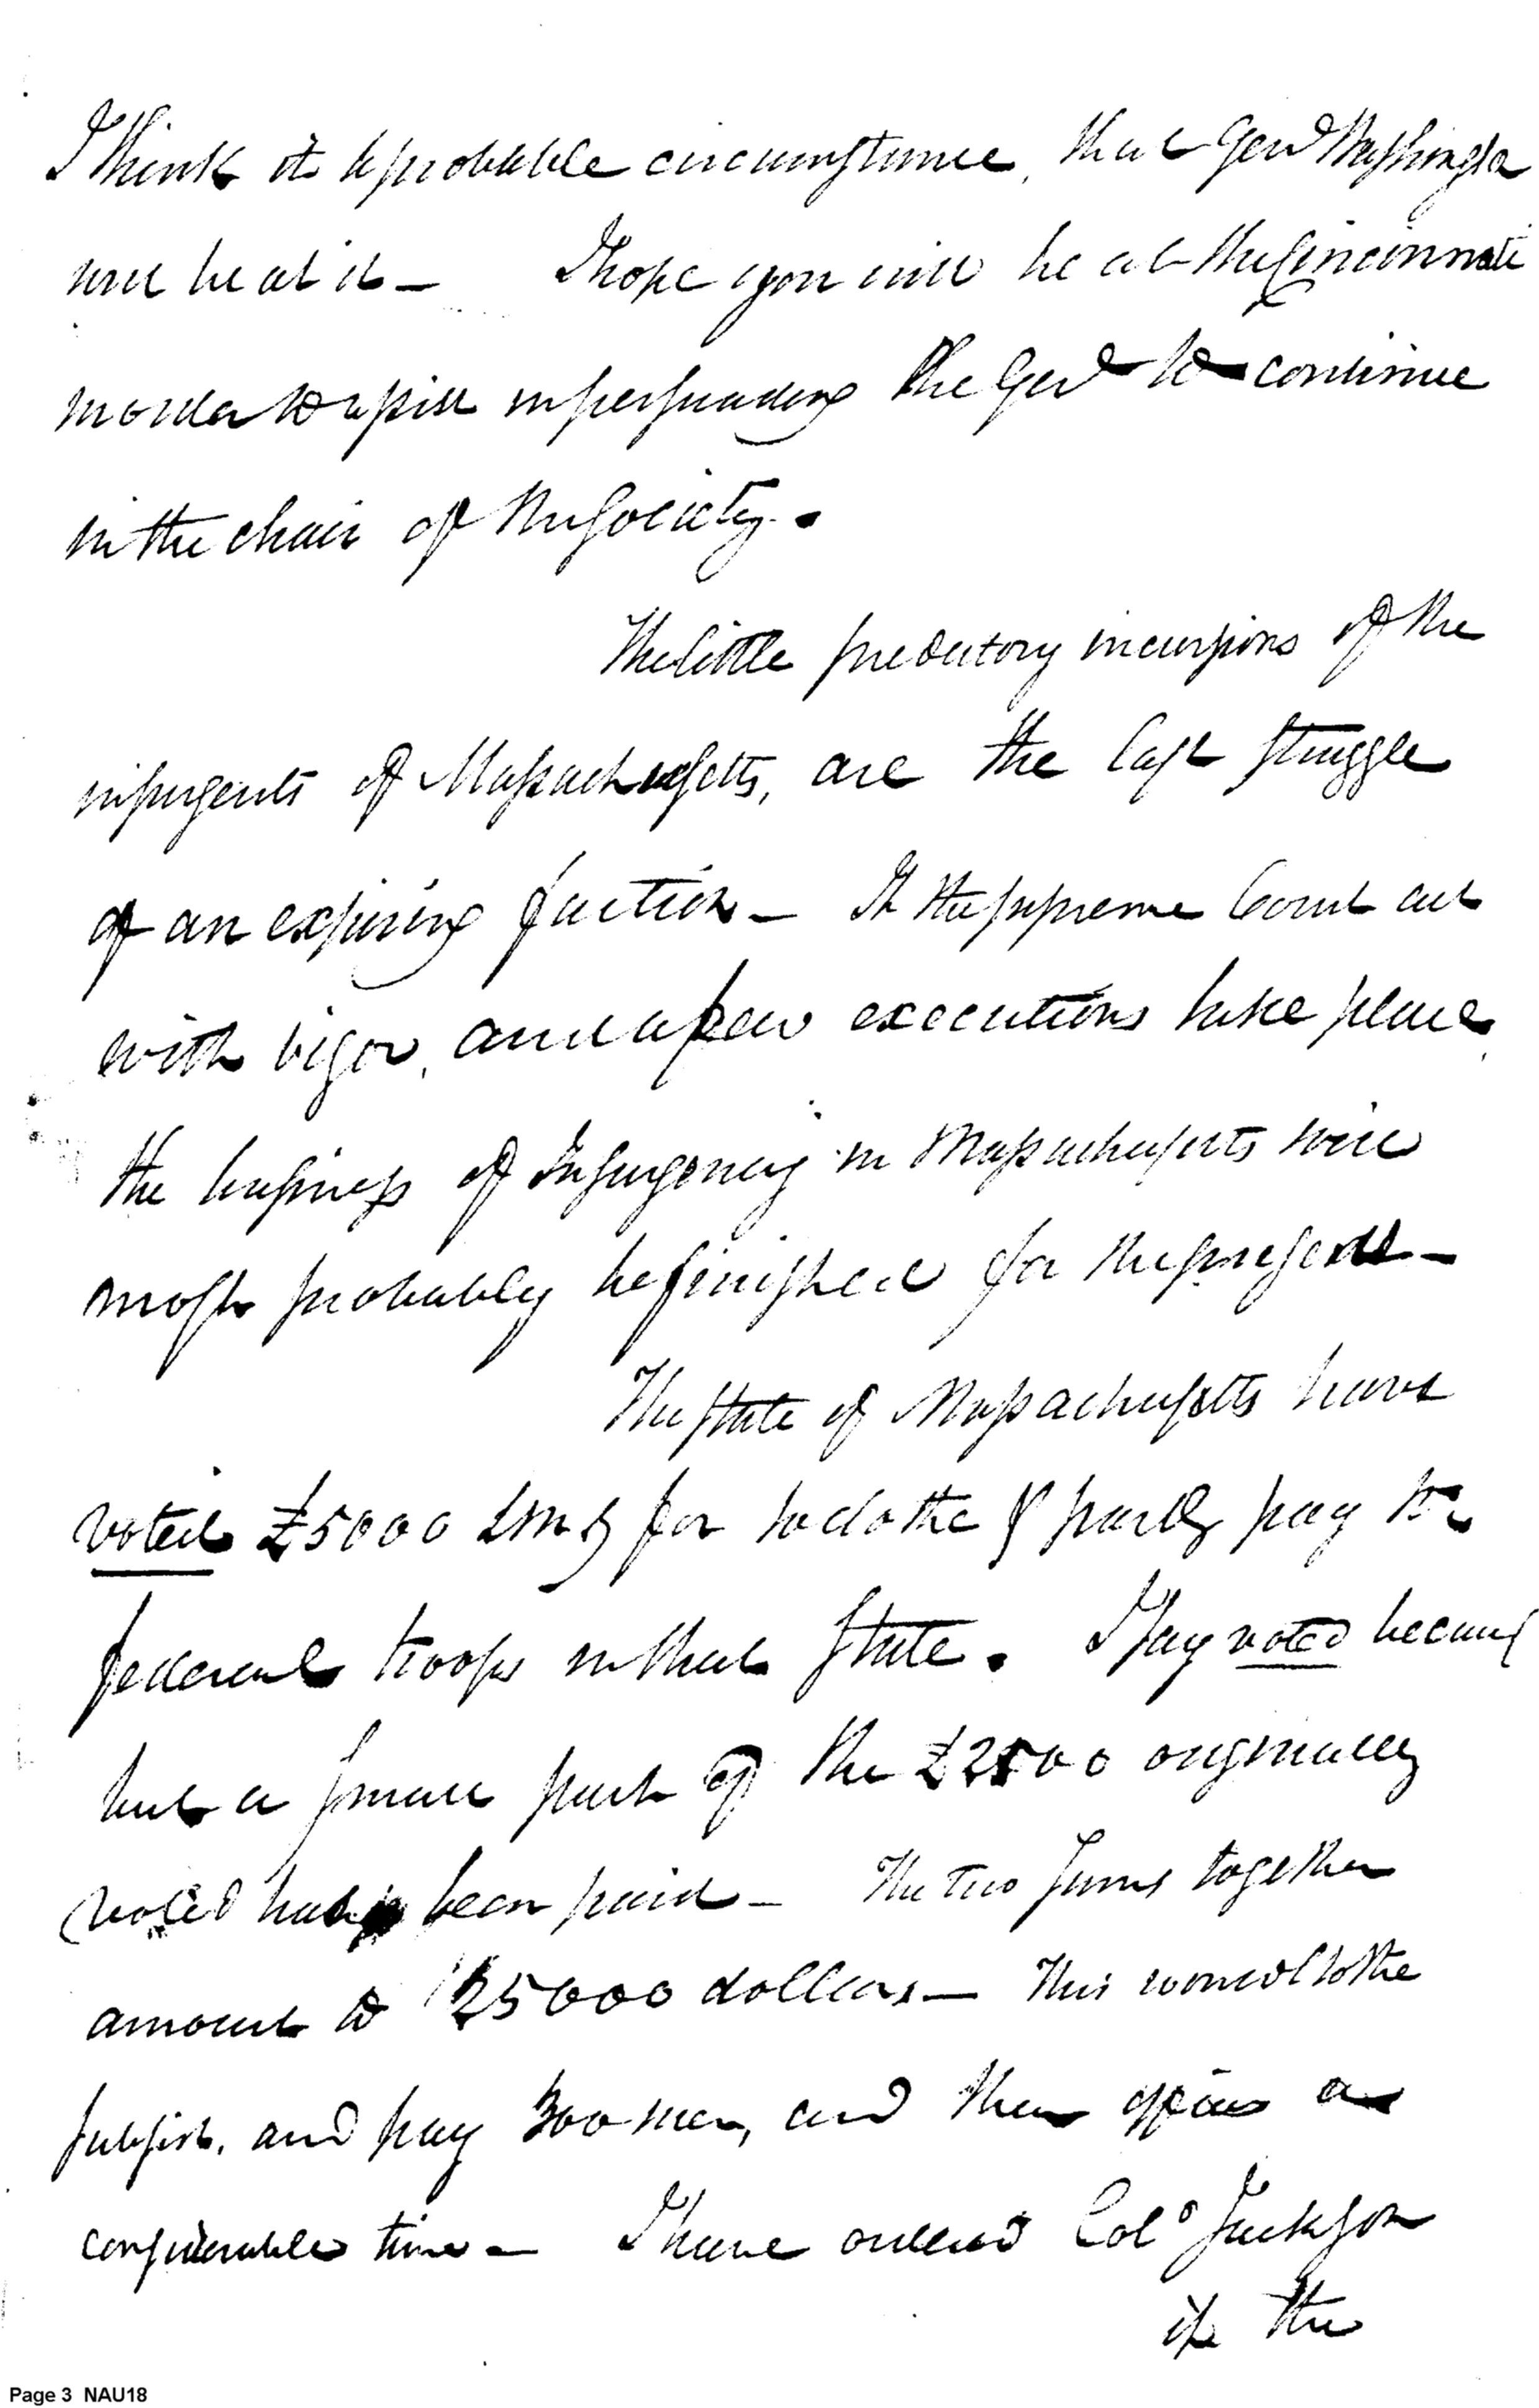 I think it a probable circumstance, that Genl Washington
will be at it – I hope you will be at the Cincinnati
in order to assist in persuading the Genl to continue
in the chair of the society.
The little predatory incursions of the
insurgents of Massachusetts, are the last struggle
of an expiring faction – If the supreme Court act
with vigor, and a few executions take place,
the business of Insurgency in Massachusetts will
most probably be finished for the present –
The state of Massachusetts have
voted £5000 LMy for to clothe & partly pay the
federal troops in that state. I say voted because
but a small part of the £2500 originally
voted has been paid – The two sums together
amount to 25000 dollars – This would clothe
subsist, and pay 300 men, and their officers a
considerable time – I have ordered Colo Jackson
if the
Page 3 NAU18